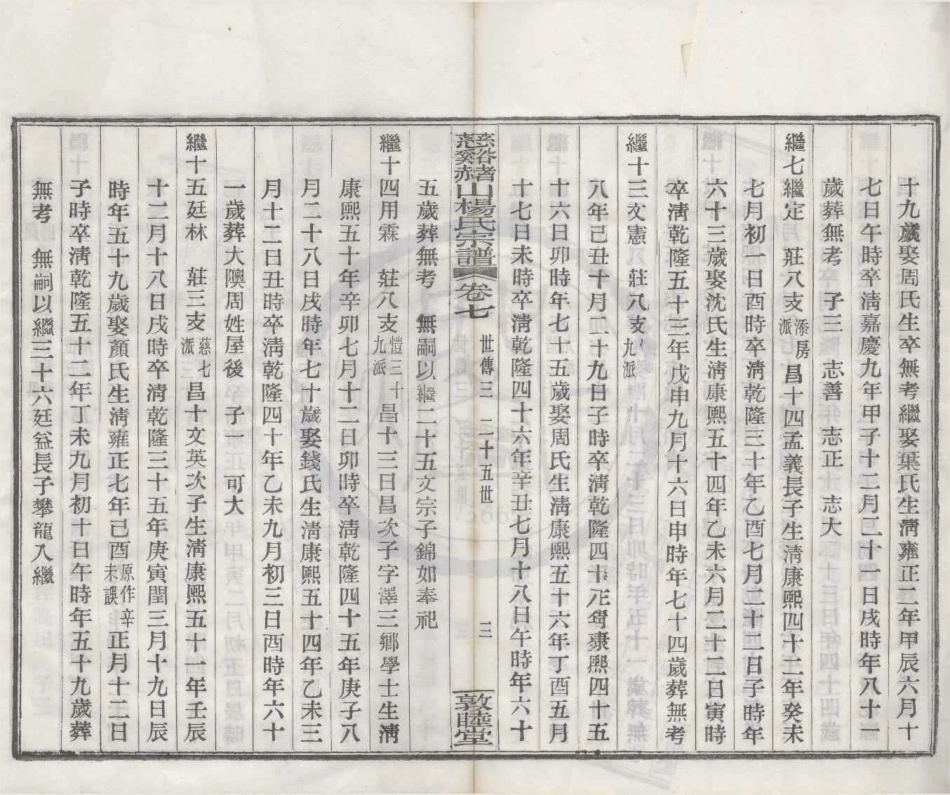 十九歲娶周氏生卒無考繼娶葉氏生淸雍正二年甲辰六月十
七日午時卒淸嘉慶九年甲子十二月二十一日戌時年八十一
歲葬無考 子三 志善 志正 志大
繼七繼定 莊八支漆房派昌十四孟義長子生淸康熙四十二年癸未
七月初一日酉時卒淸乾隆三十年乙酉七月二十二日子時年
六十三歲娶沈氏生淸康熙五十四年乙未六月二十二日寅時
卒淸乾隆五十三年戊申九月十六日申時年七十四歲葬無考
繼十三文憲 莊八支九派
八年己丑十月二十九日子時卒淸乾隆四十 康熙四十五
十六日卯時年七十五歲娶周氏生淸康熙五十六年丁酉五月
十七日未時卒淸乾隆四十六年辛丑七月十八日午時年六十
五歲葬無考 無嗣以繼二十五文宗子錦如奉祀
慈谿赭山楊氏宗譜 卷七 世傳三 二十五世 三 敦睦堂
繼十四用霖 莊八支愷三十九派昌十三日昌次子字澤三鄉學士生淸
康熙五十年辛卯七月十二日卯時卒淸乾隆四十五年庚子八
月二十八日戌時年七十歲娶錢氏生淸康熙五十四年乙未三
月十二日丑時卒淸乾隆四十年乙未九月初三日酉時年六十
一歲葬大隩周姓屋後 子一 可大
繼十五廷林 莊三支慈七派昌十文英次子生淸康熙五十一年壬辰
十二月十八日戌時卒淸乾隆三十五年庚寅閏三月十九日辰
時年五十九歲娶顏氏生淸雍正七年己酉原作辛未誤正月十二日
子時卒淸乾隆五十二年丁未九月初十日午時年五十九歲葬
無考 無嗣以繼三十六廷益長子攀龍入繼